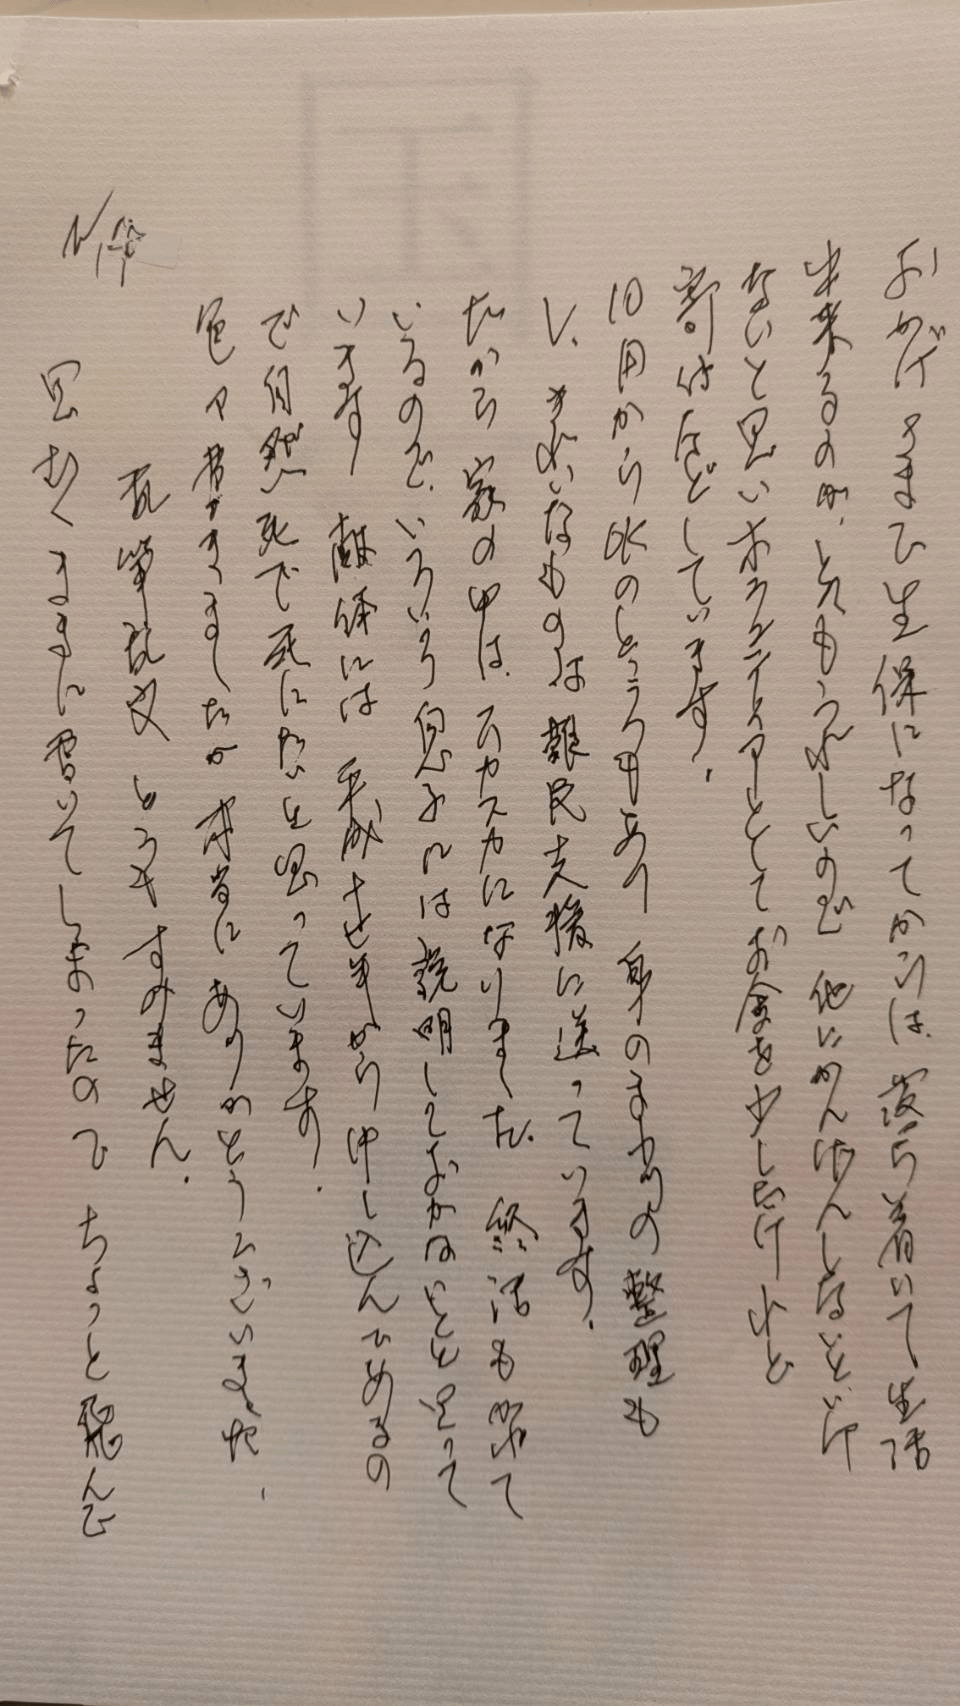 おかげさまで生保になってからは、落ち着いて、生活
出来るのが、とてもうれしいので 他にかんけんしなといけ
ないと思いボランティアーとして お金を少しだけれど
寄付などしています。
10月から 身のまわりの整理も
し、きれいなものは 難民支援に送っています。
だから 家の中は、スカスカになりました。 終活もかねて
いるので、いろいろ 息子には 説明しておかないとと思って
います 献体には 平成 年から 申し込んであるの
で自然死で死にたいと思っています。
色々書きましたが 本当に ありがとうございました、
乱筆乱文 どうも すみません。
思おくままに書いてしまったので ちょっと飛んで